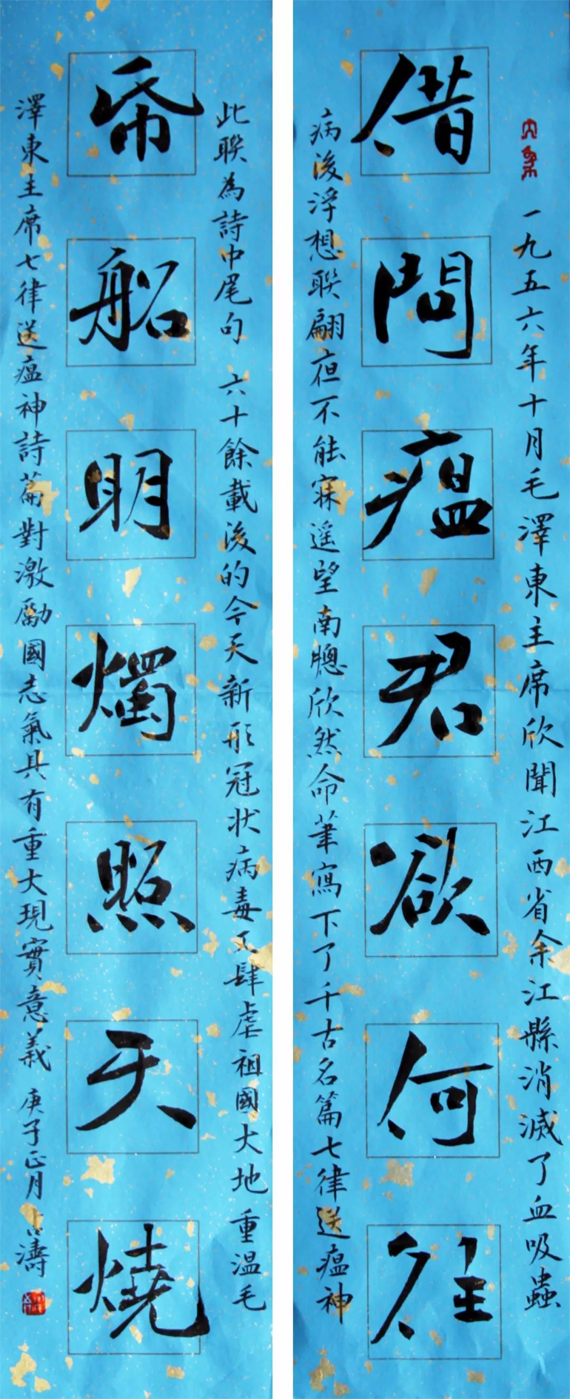 一九五六年十月毛澤東主席欣聞江西省余江縣消滅了血吸蟲
借問瘟君欲何往
病後浮想聯翩夜不能寐遥望南牕欣然命筆寫下了千古名篇七律送瘟神
此聯為詩中尾句 六十餘載後的今天新形冠状病毒又肆虐祖國大地 重温毛
帋船明燭照天燒
澤東主席七律送瘟神詩篇對激勵國志氣具有重大現實意義 庚子正月 濤